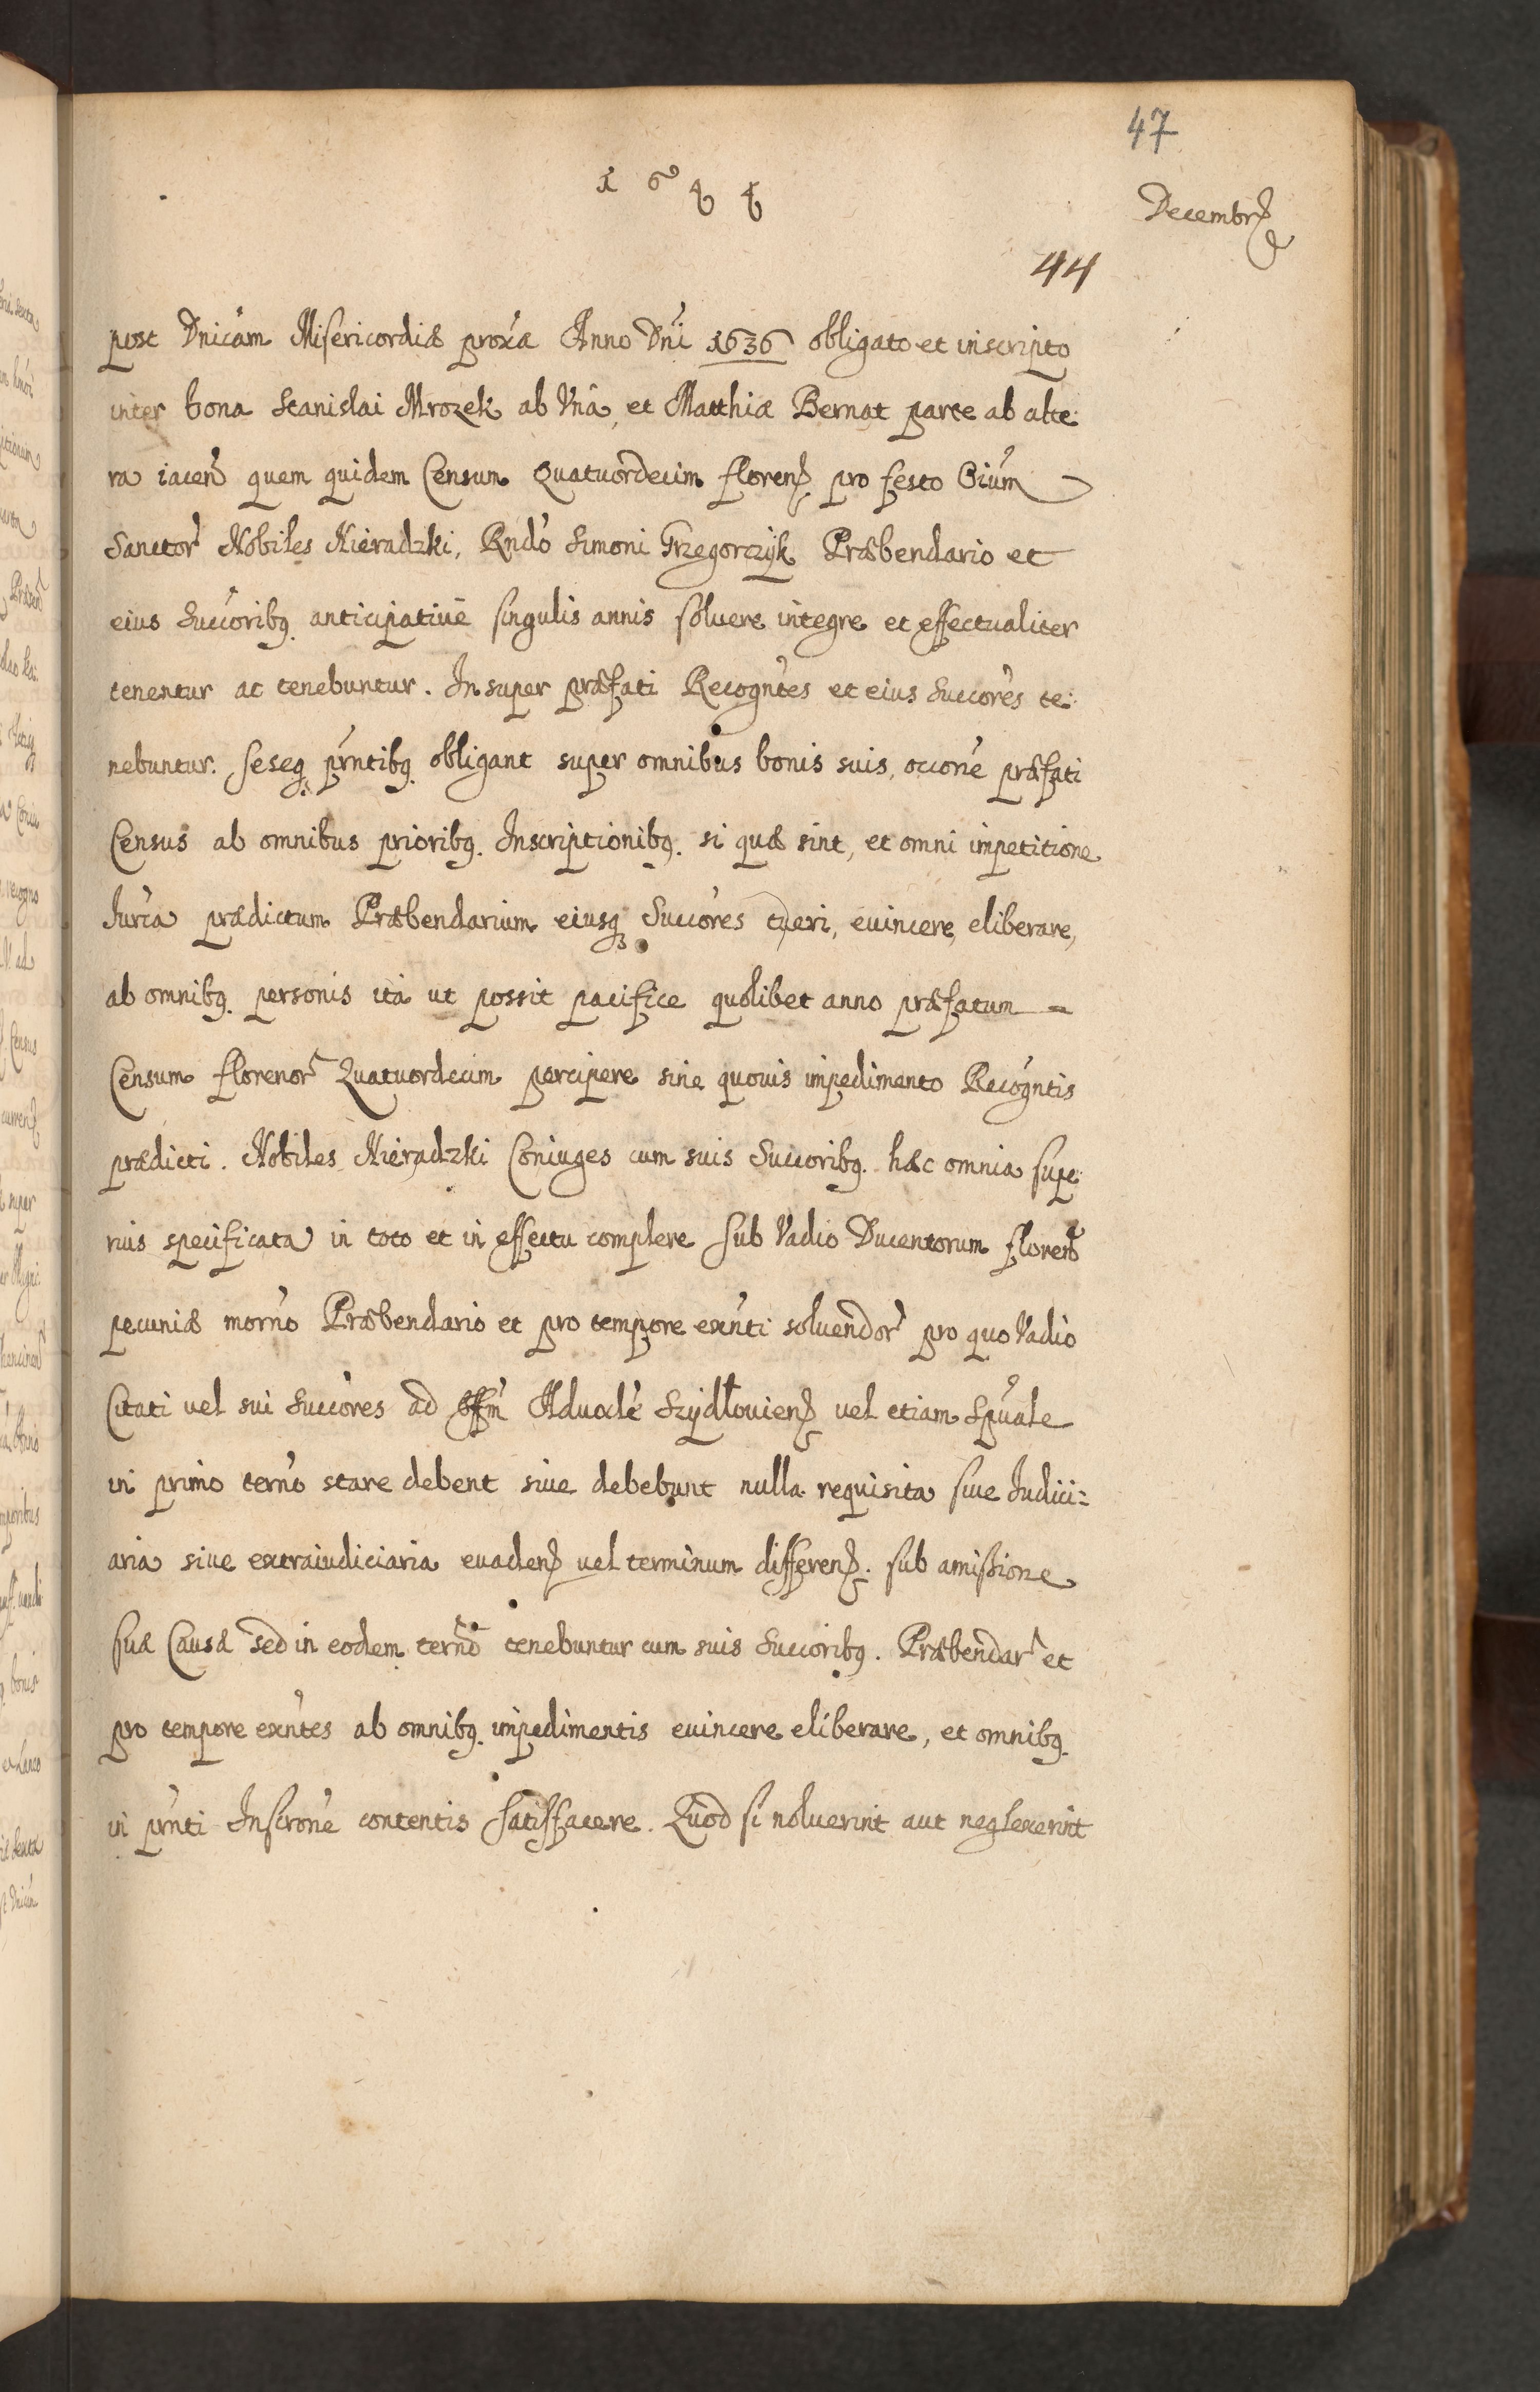 47
1644
Decembr
44
post Dnicam Misericordiæ proxa Anno Dni 1636 obligato et inscripto
inter bona Stanislai Mrozek ab Vna, et Matthiæ Bernat parte ab alte:
ra iacen quem quidem Censum Quatuordecim floren pro festo Oium
Sanctor Nobiles Nieradzki, Rndo Simoni Grzegorczyk Præbendario et
eius Succoribq anticipatiue singulis annis soluere integre et effectualiter
tenentur ac tenebuntur. In super præfati Recogntes et eius Succores te:
nebuntur. seseq prntibq obligant super omnibus bonis suis, occone præfati
Census ab omnibus prioribq. Inscriptionibq. si quæ sint, et omni impetitione
Iurca prædictum Præbendarium eiusq Succores tueri, euincere, eliberare,
ab omnibq. personis ita ut possit pacifice quolibet anno præfatum
Censum florenor Quatuordecim percipere sine quouis impedimento Recogntis
prædicti. Nobiles Nieradzki Coniuges cum suis Succoribq. hæc omnia supe:
rius specificata in toto et in effectu complere sub Vadio Ducentorum floren
pecuniæ morno Præbendario et pro tempore exnti soluendor pro quo Vadio
Citati uel sui Succores ad Offm Aduocle Szydłouien uel etiam Spuale
in primo terno stare debent siue debebunt nulla requisita siue Iudici:
aria siue extraiudiciaria euaden uel terminum differen. sub amissione
suæ Causæ sed in eodem terno tenebuntur cum suis Succoribq. Præbendar et
pro tempore exntes ab omnibq. impedimentis euincere eliberare, et omnibq.
in prnti Inscrone contentis satisfacere. Quod si noluerint aut neglexerint